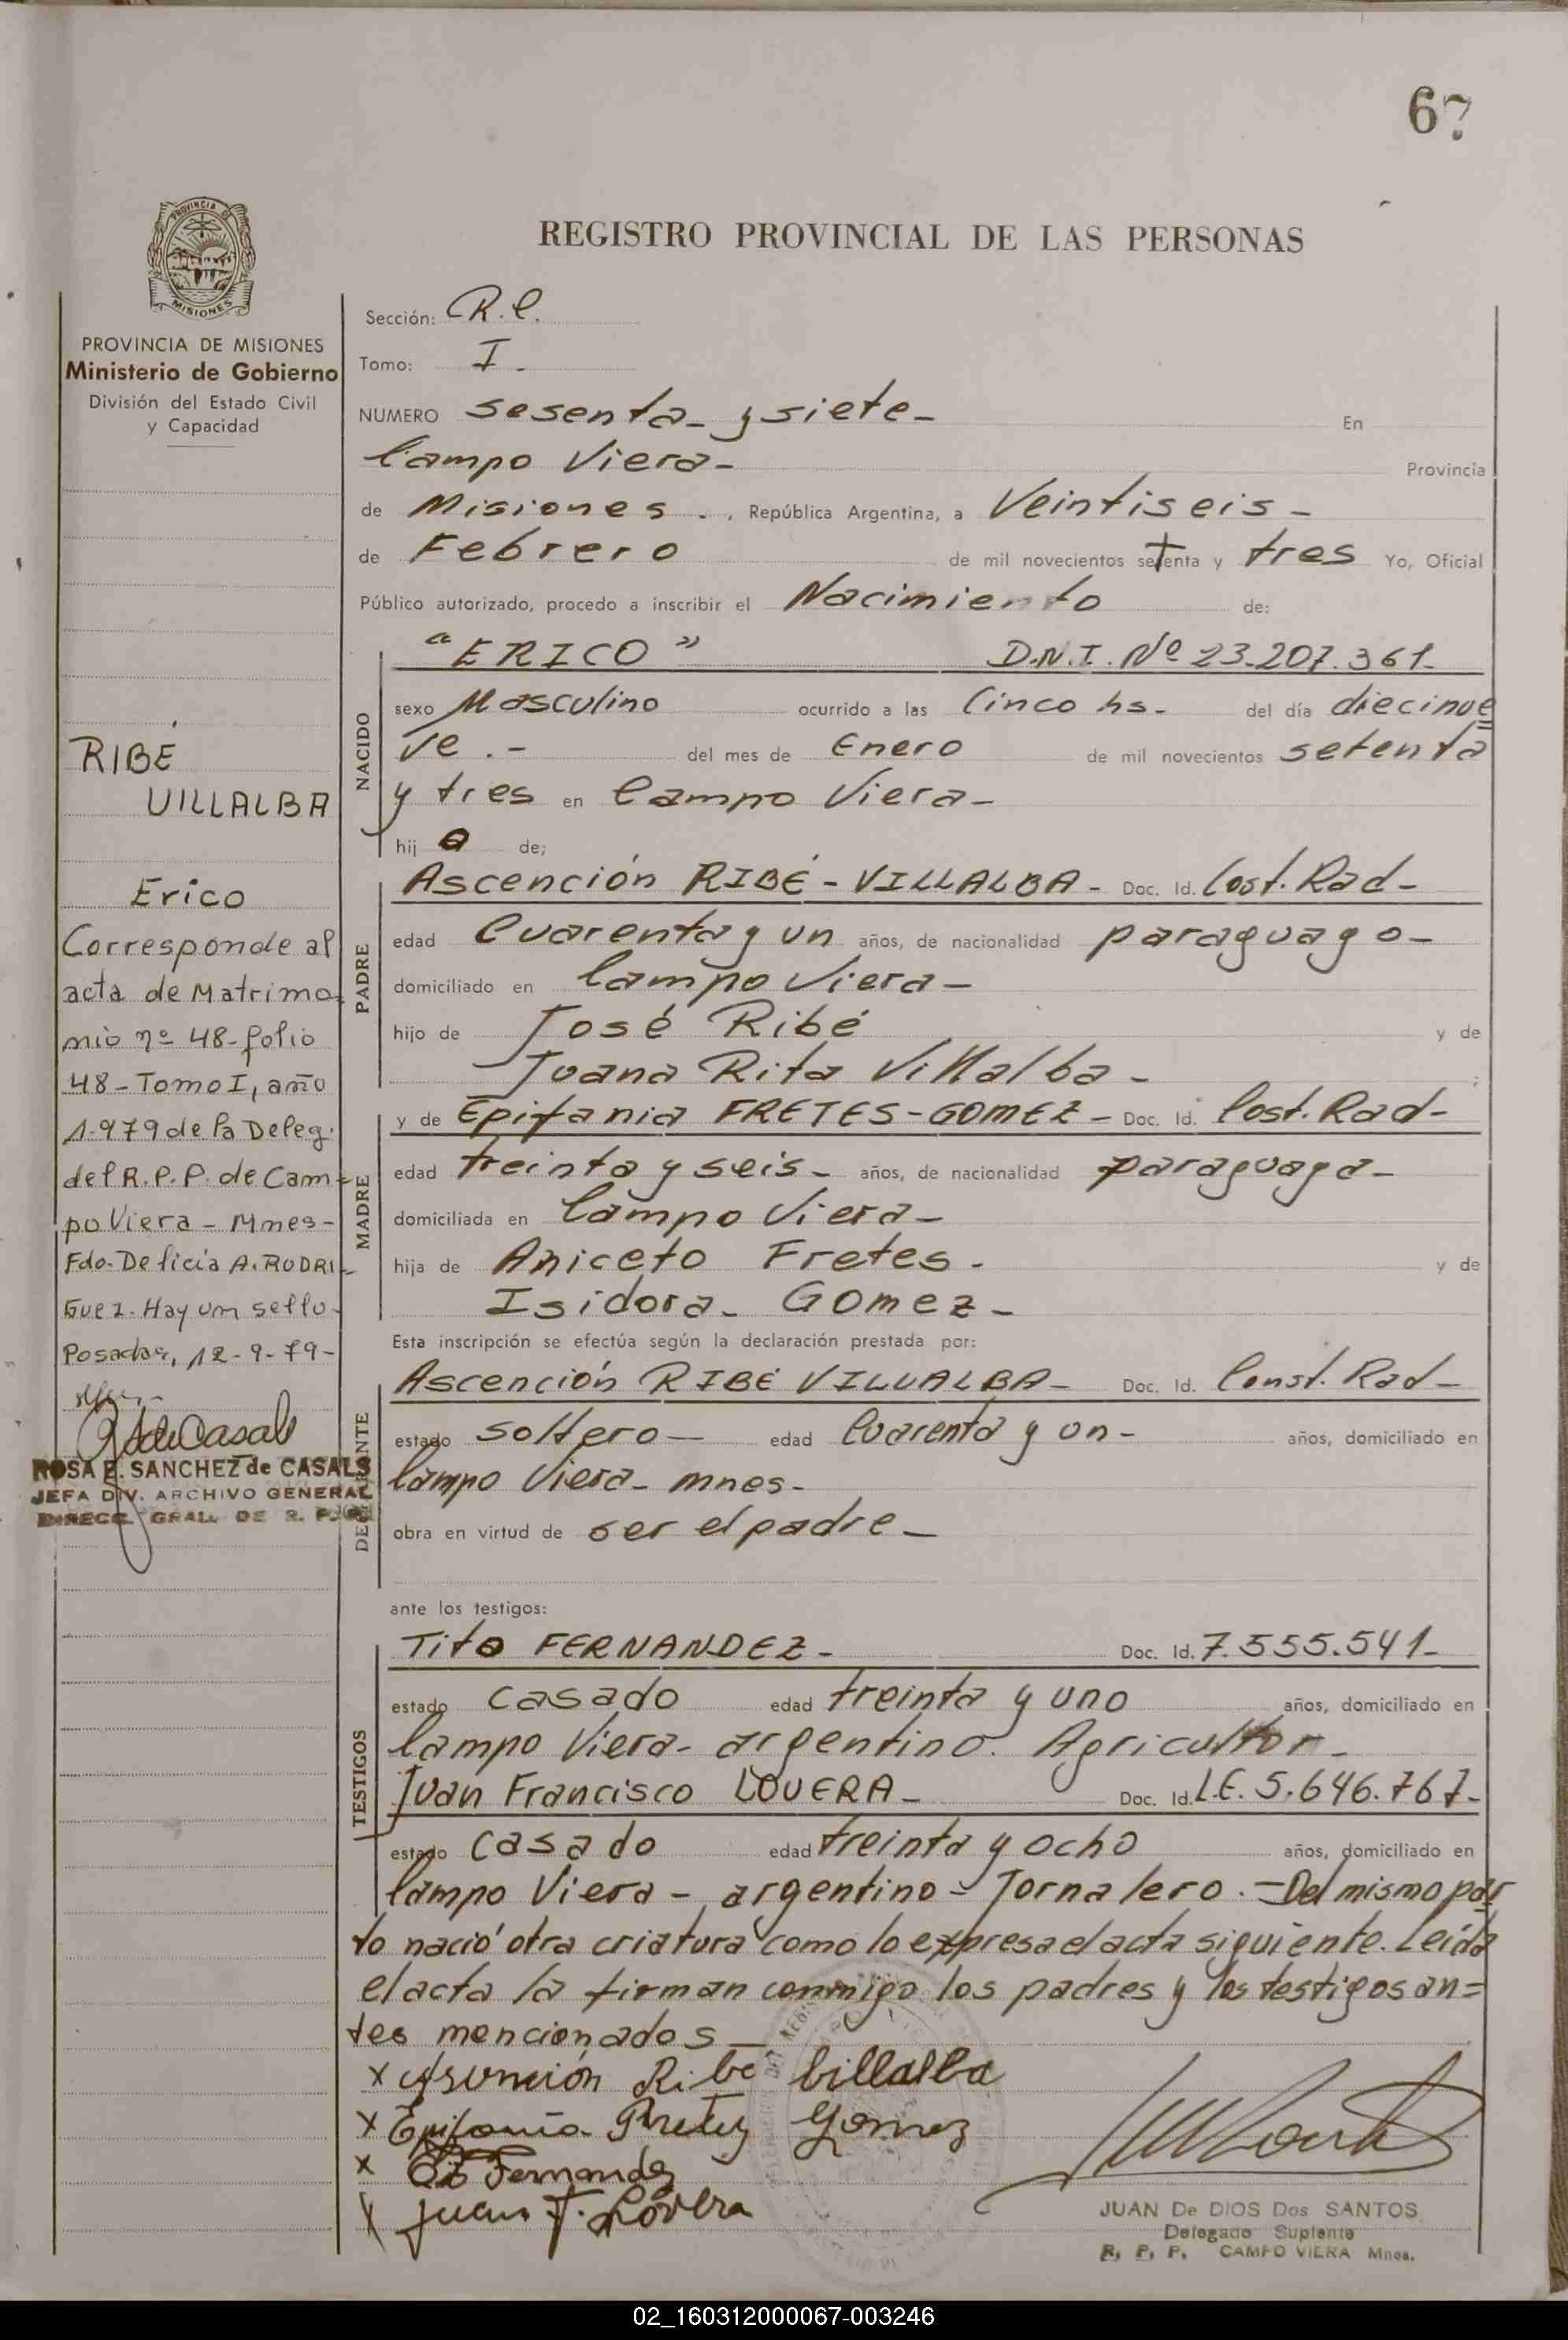 67
PROVINCIA DE
MISIONES
PROVINCIA DE MISIONES
Ministerio de Gobierno
División del Estado Civil
y Capacidad
RIBÉ
VILLALBA
Erico
Corresponde al
acta de Matrimo-
nio nº 48-folio
48-Tomo I, año
1.979 de la Deleg.
del R.P.P. de Cam-
po Viera - Mnes-
Fdo. Delicia A. RODRI-
GUEZ. Hay un sello-
Posadas, 12-9-79-
ROSA E. SANCHEZ de CASALS
JEFA DIV. ARCHIVO GENERAL
DIRECC. GRAL. DE R. P.
REGISTRO PROVINCIAL DE LAS PERSONAS
Sección: R.C.
Tomo: I.
NUMERO sesenta y siete- En
Campo Viera- Provincia
de Misiones., República Argentina, a Veintiseis-
de Febrero de mil novecientos setenta y tres Yo, Oficial
Público autorizado, procedo a inscribir el Nacimiento de:
"ERICO" D.N.I. Nº 23.207.361-
NACIDO
sexo Masculino ocurrido a las Cinco hs- del día diecinue
ve.- del mes de Enero de mil novecientos setenta
y tres en Campo Viera-
hijo de;
PADRE
Ascención RIBÉ-VILLALBA- Doc. Id. Cost. Rad-
edad Cuarenta y un años, de nacionalidad paraguayo-
domiciliado en Campo Viera-
hijo de José Ribé y de
Juana Rita Villalba- ;
MADRE
y de Epifania FRETES-GOMEZ- Doc. Id. Cost. Rad-
edad treinta y seis- años, de nacionalidad paraguaya-
domiciliada en Campo Viera-
hija de Aniceto Fretes. y de
Isidora- Gomez-
Esta inscripción se efectúa según la declaración prestada por:
Ascención RIBÉ VILLALBA- Doc. Id. Const. Rad-
estado soltero- edad Cuarenta y un- años, domiciliado en
Campo Viera- mnes-
obra en virtud de ser el padre-
ante los testigos:
TESTIGOS
Tito FERNANDEZ- Doc. Id. 7.555.541-
estado casado edad treinta y uno años, domiciliado en
Campo Viera- argentino. Agricultor-
Juan Francisco LOVERA- Doc. Id. L.E. 5.646.767-
estado casado edad treinta y ocho años, domiciliado en
Campo Viera- argentino- Jornalero.-Del mismo par
to nació otra criatura como lo expresa el acta siguiente. Leída
el acta la firman conmigo los padres y los testigos an=
tes mencionados-
x Asunción Ribe billalba
x Epifania Fretez Gomez
x Tito Fernandez
x Juan F. Lovera
JUAN De DIOS Dos SANTOS
Delegado Suplente
R. P. P. CAMPO VIERA Mnes.
02_160312000067-003246